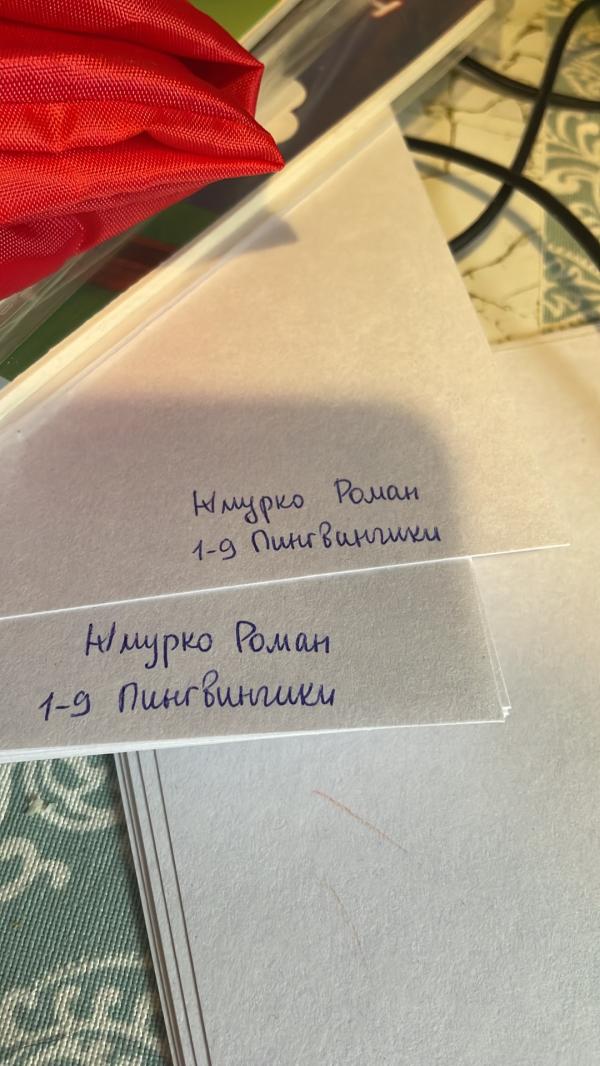 Жмурко Роман
1-9 Пингвингики
Жмурко Роман
1-9 Пингвингики